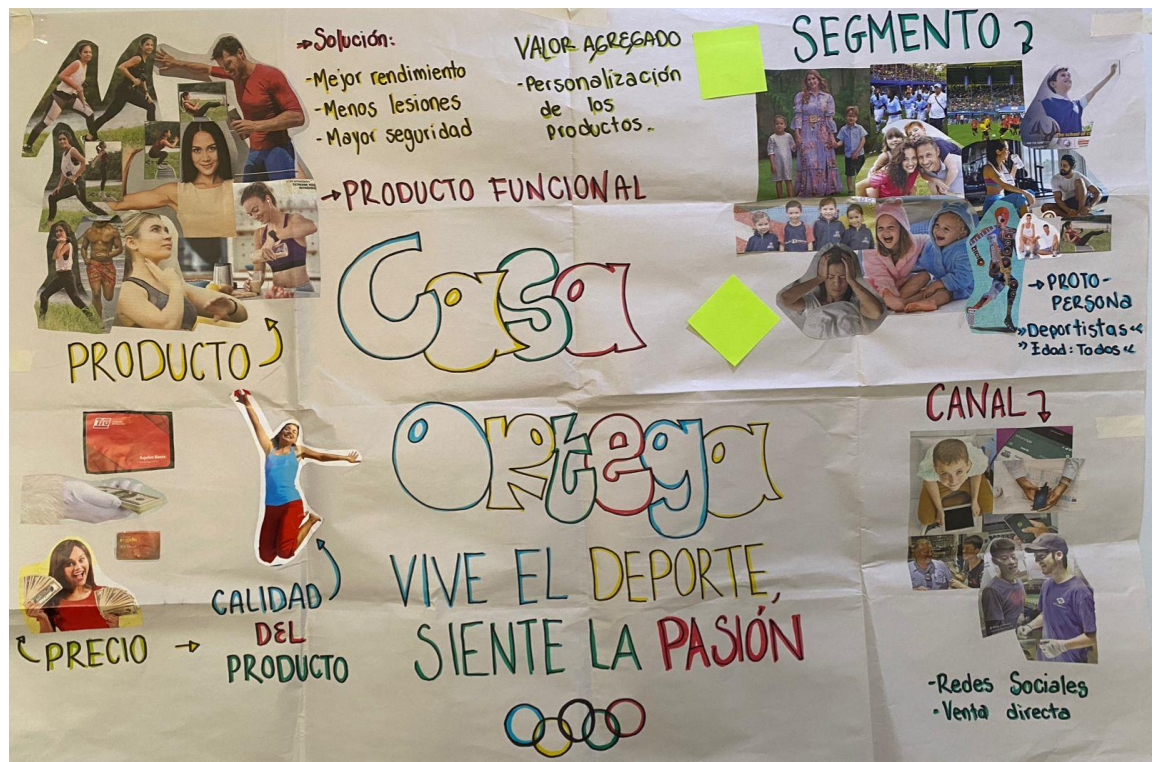 →Solución:
-Mejor rendimiento
-Menos lesiones
-Mayor seguridad
VALOR AGREGADO
-Personalización
de los
Productos.
→PRODUCTO FUNCIONAL
SEGMENTO
→PROTO-
PERSONA
»Deportistas«
"Idad: Todos"
PRODUCTO
Casa
Ortega
VIVE EL DEPORTE,
SIENTE LA PASIÓN
PRECIO →
CALIDAD
DEL
PRODUCTO
CANAL
-Redes Sociales
-Venta directa